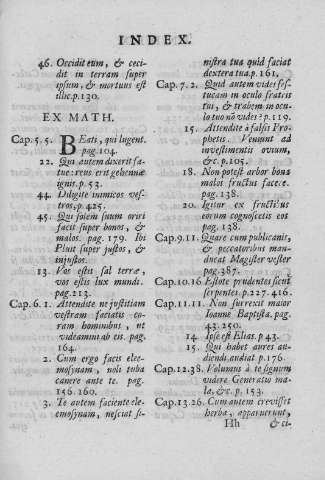 INDEX.
46. Occidit eum, & ceci-
dit in terram super
ipsum, & mortuus est
illic. p. 130.
EX MATH.
Cap. 5. 5. BEati, qui lugent.
pag. 104.
22. Qui autem dixerit fa-
tue: reus erit gehennæ
ignis. p. 53.
44. Diligite inimicos ves-
tros, p. 425.
45. Qui solem suum oriri
facit super bonos, &
malos. pag. 179. Ibi
Pluit super justos, &
injustos.
13. Vos estis sal terræ,
vos estis lux mundi.
pag. 213.
Cap. 6. 1. Attendite ne justitiam
vestram faciatis co-
ram hominibus, ut
videamini ab eis. pag.
164.
2. Cum ergo facis elee-
mosynam, noli tuba
canere ante te. pag.
156. 160.
3. Te autem faciente ele-
emosynam, nesciat si-
nistra tua quid faciat
dextera tua. p. 161.
Cap. 7. 2. Quid autem vides fes-
tucam in oculo fratris
tui, & trabem in ocu-
lo tuo nō vides? p. 119.
15. Attendite à falsis Pro-
phetis. Veniunt ad
investimentis ovium,
&c. p. 105.
18. Non potest arbor bona
malos fructus facere.
pag. 138.
20. Igitur ex fructibus
eorum cognoscetis eos
pag. 138.
Cap. 9. 11. Quare cum publicanis,
& peccatoribus man-
ducat Magister vester
pag. 387.
Cap. 10. 16 Estote prudentes sicut
serpentes p. 227. 416.
Cap. 11. 11. Non surrexit maior
Ioanne Baptista. pag.
43. 250.
14 Ipse est Elias. p. 43.
15. Qui habet aures au-
diendi, audiat p. 176.
Cap. 12. 38. Volumus à te signum
videre Generatio ma-
la, &c. p. 153.
Cap. 13. 26. Cum autem crevisset
herba, apparuerunt,
Hh & ci-